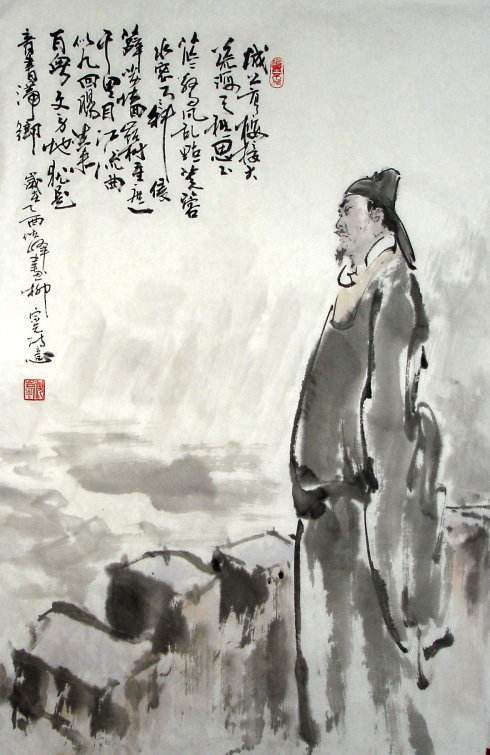 城上高樓接大
荒海天愁思正
茫茫驚風乱飐芙蓉
水密雨斜侵
薜荔墙岭树重遮
千里目江流曲
似九回腸共来
百粤文身地犹是
音書滞鄉 歲在乙酉 峰画柳宗元诗意